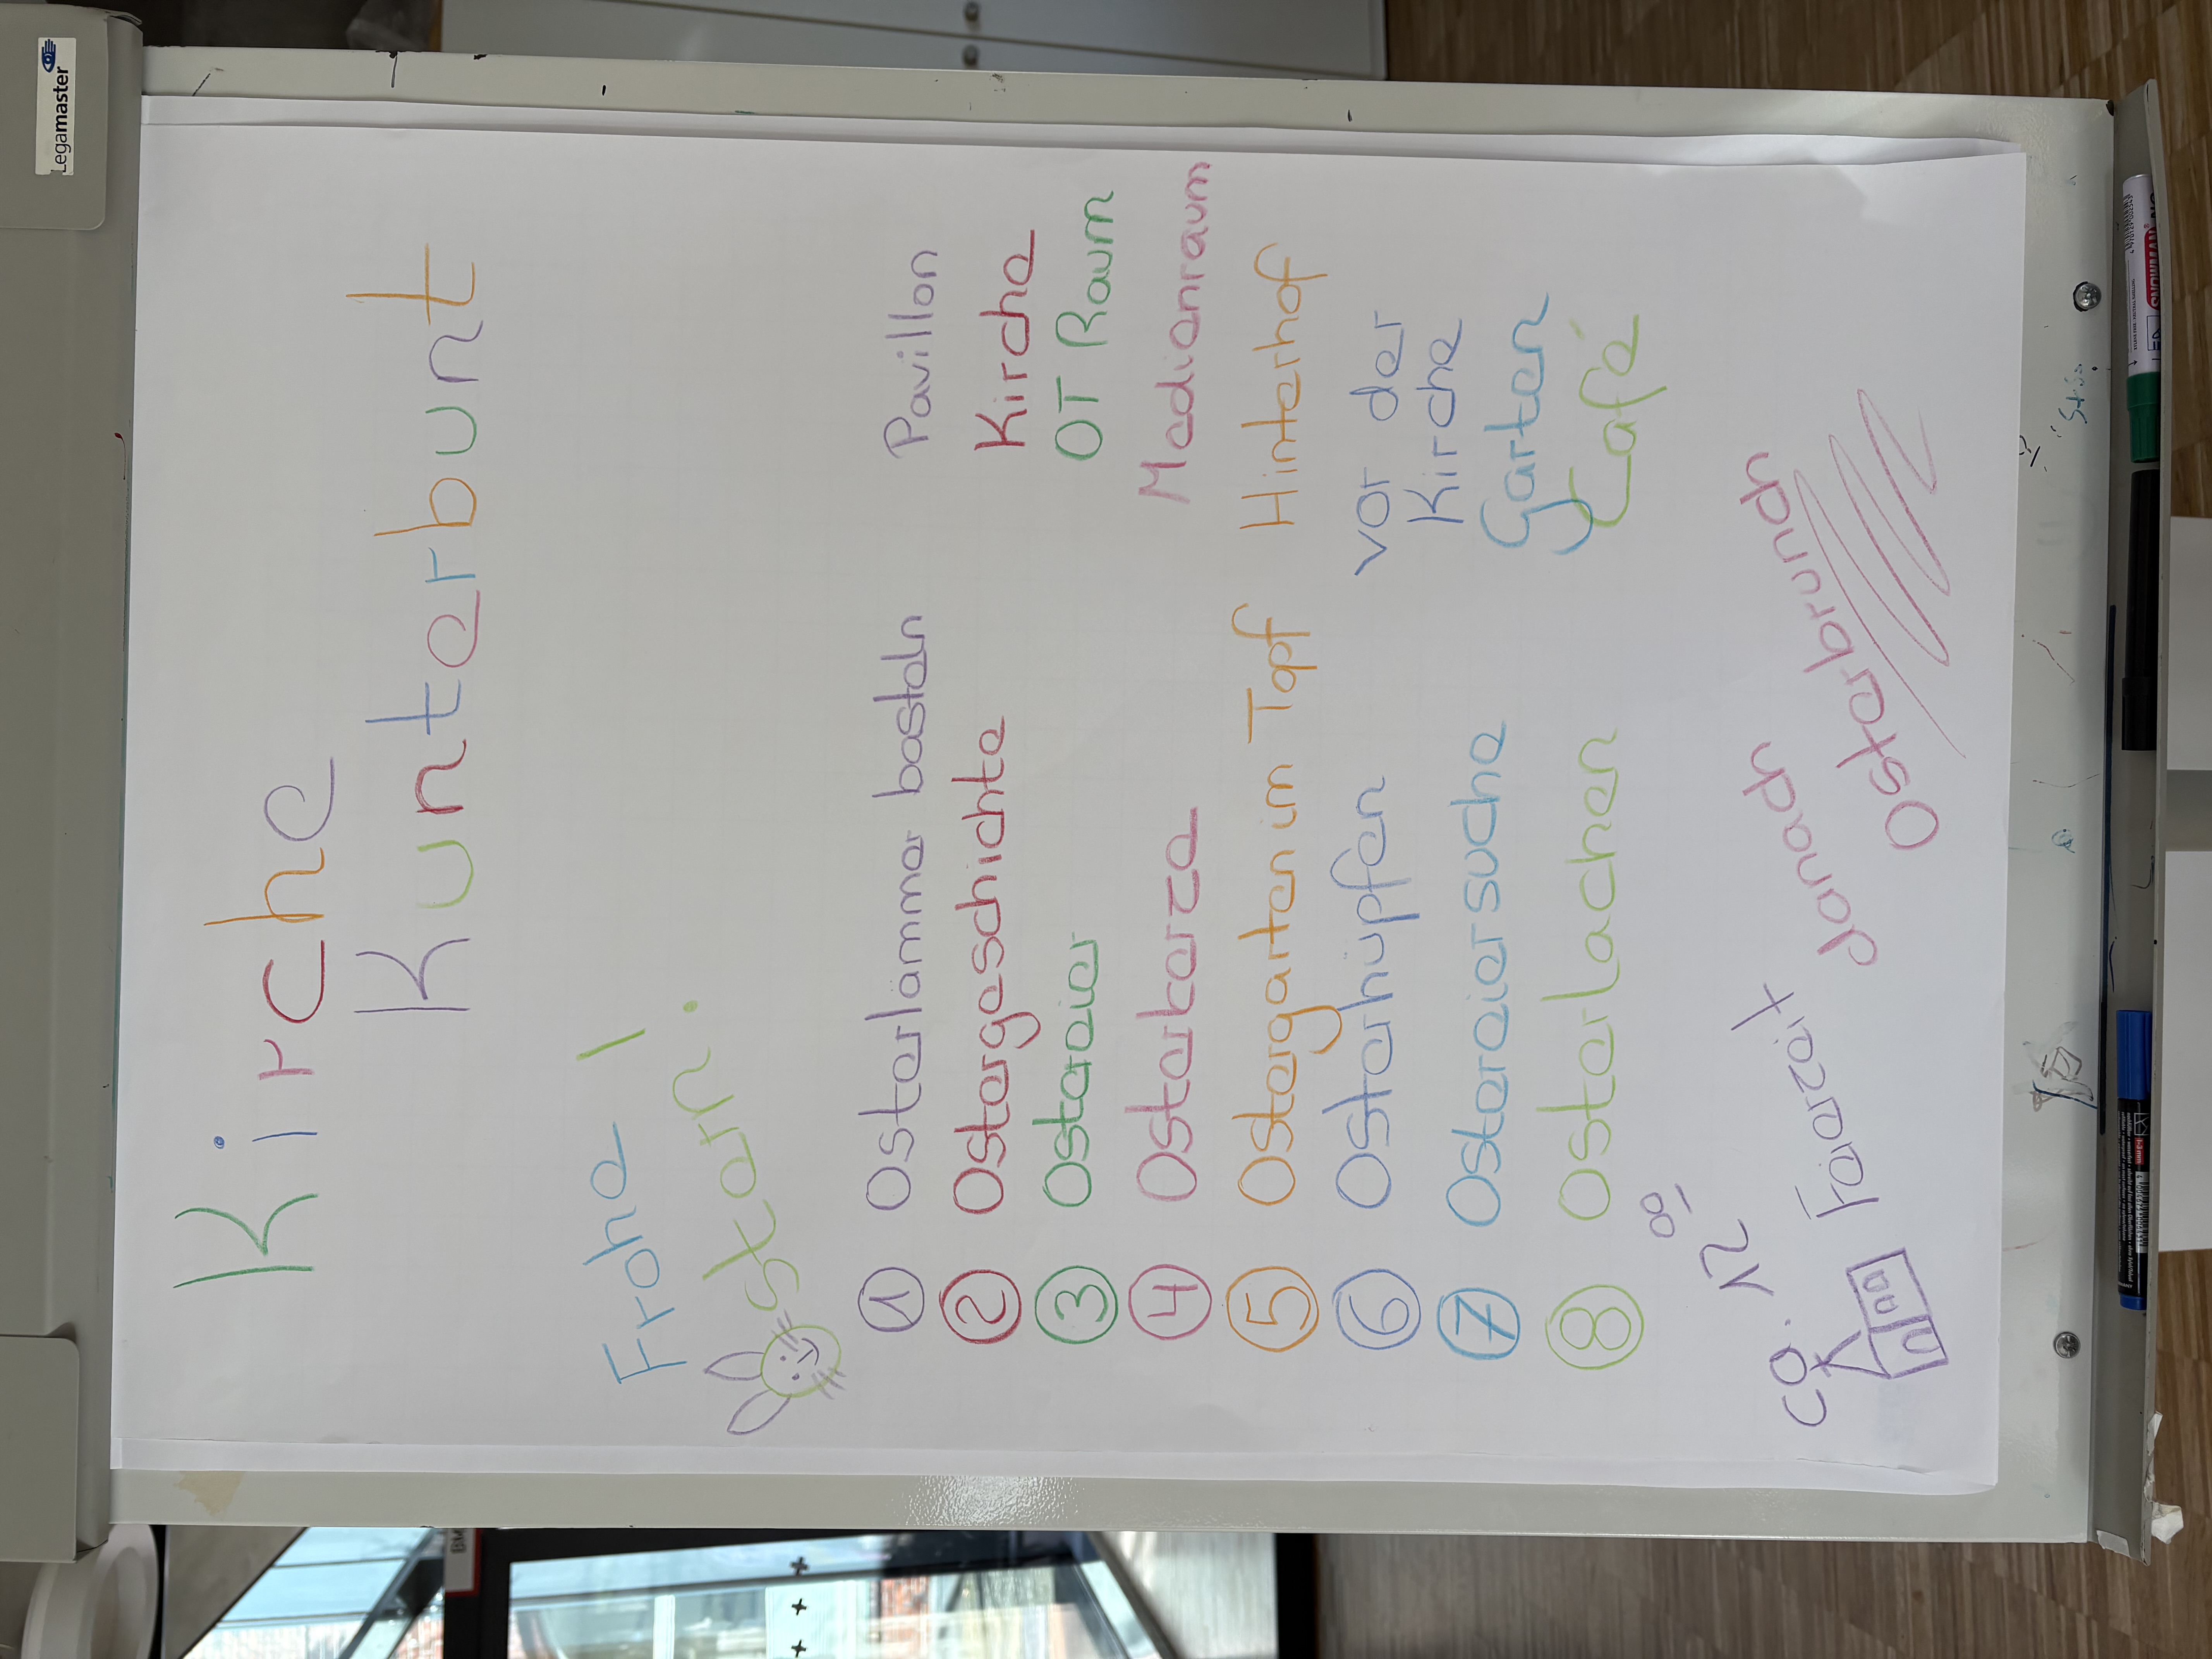 Legamaster
Kirche
Kunterbunt
Frohe
Ostern!
1 Osterlämmer basteln Pavillon
2 Ostergeschichte Kirche
3 Ostereier OT Raum
4 Osterkerze Medienraum
5 Ostergarten im Topf Hinterhof
6 Osterhüpfen vor der
Kirche
7 Ostereiersuche Garten
8 Osterlachen Café
ca. 12 00 Feierzeit
danach
Osterbrunch